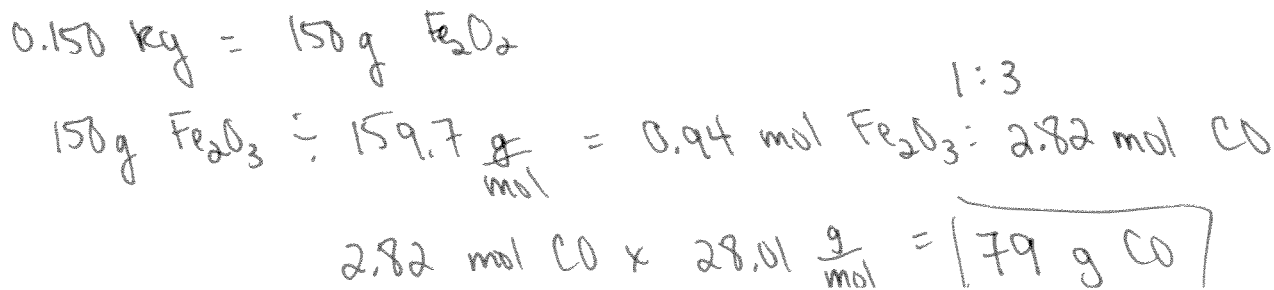 0.150 kg = 150 g Fe₂O₂
1:3
150g Fe₂O₃ ÷ 159.7 g/mol = 0.94 mol Fe₂O₃: 2.82 mol CO
2.82 mol CO x 28.01 g/mol = 79 g CO